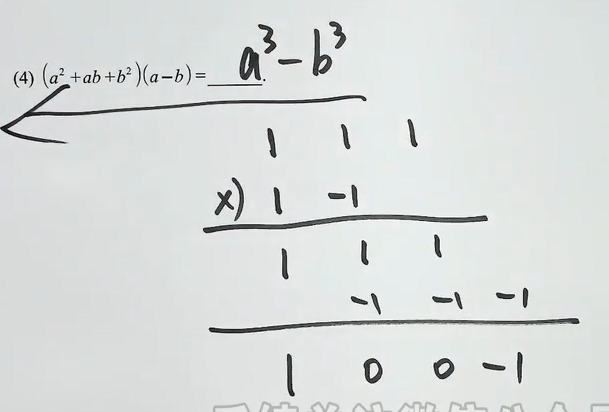 (4) (a² + ab + b²)(a − b) = a³ − b³.
1 1 1
×) 1 −1
1 1 1
−1 −1 −1
1 0 0 −1